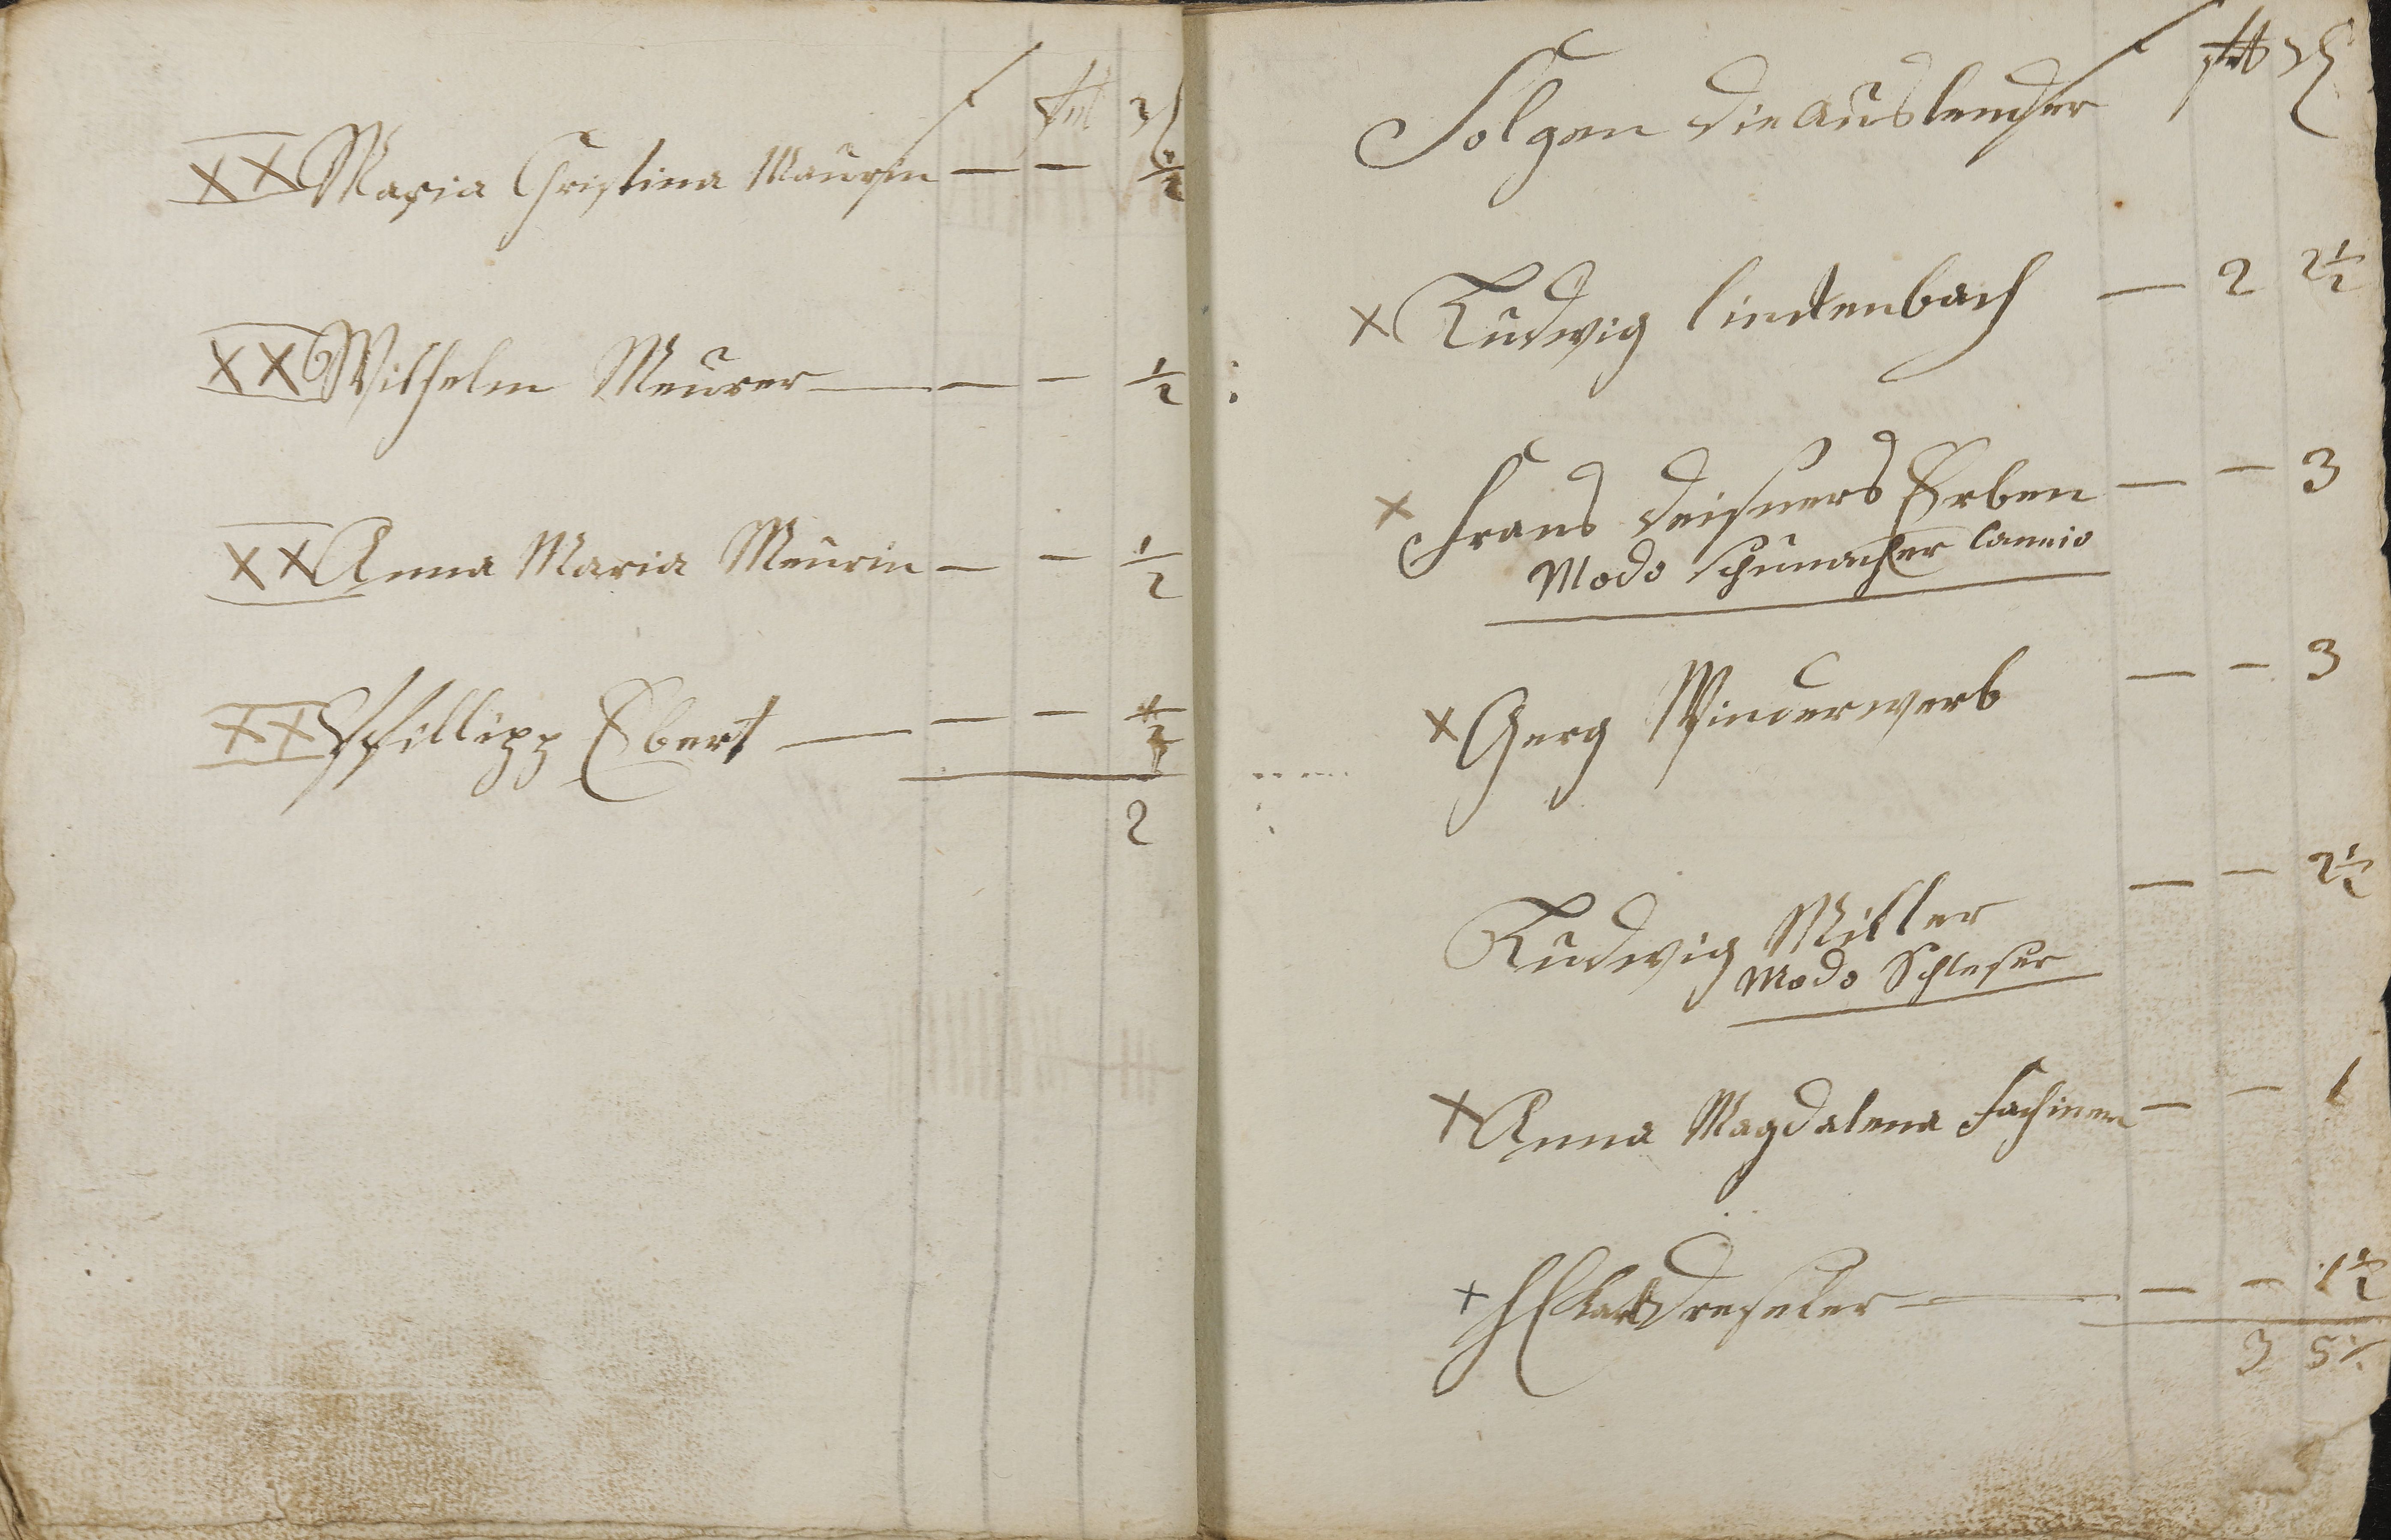 f stbl ₰
XX Maria Christina Maurin — — ½
XX Wilhelm Meurer — — ½
XX Anna Maria Meurin — — ½
XX Phillipp Ebert — — ½
2
f stbl ₰
Folgen die auslender
x Ludwig lindenbach — 2 2½
x Frans deisners Erben — — 3
Modo schumacher Cannio
x Gerg Winderwerb — — 3
Ludwig Miller — — 2½
Modo Schleser
x Anna Magdalena — — 1
x dreseler — — 1½
3 5½